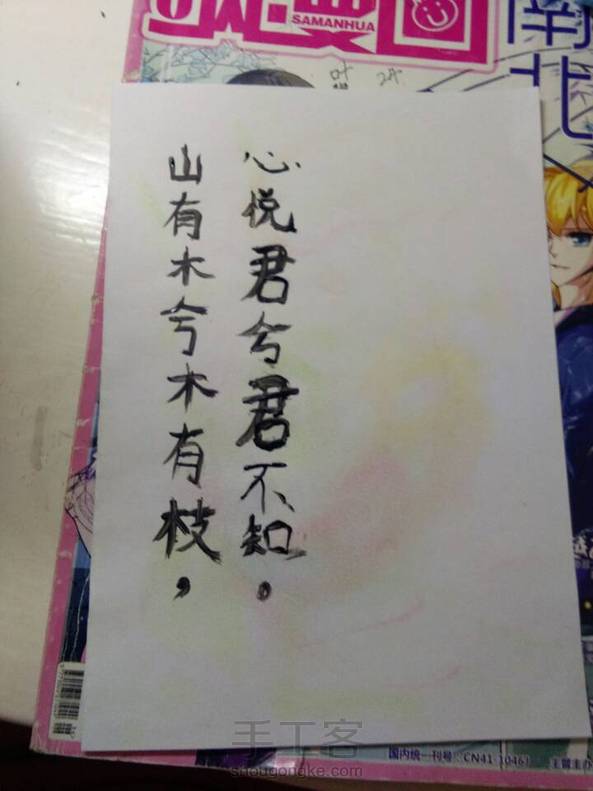 SAMANHUA
山有木兮木有枝，
心悦君兮君不知。
手工客
shougongke.com
国内统一刊号：